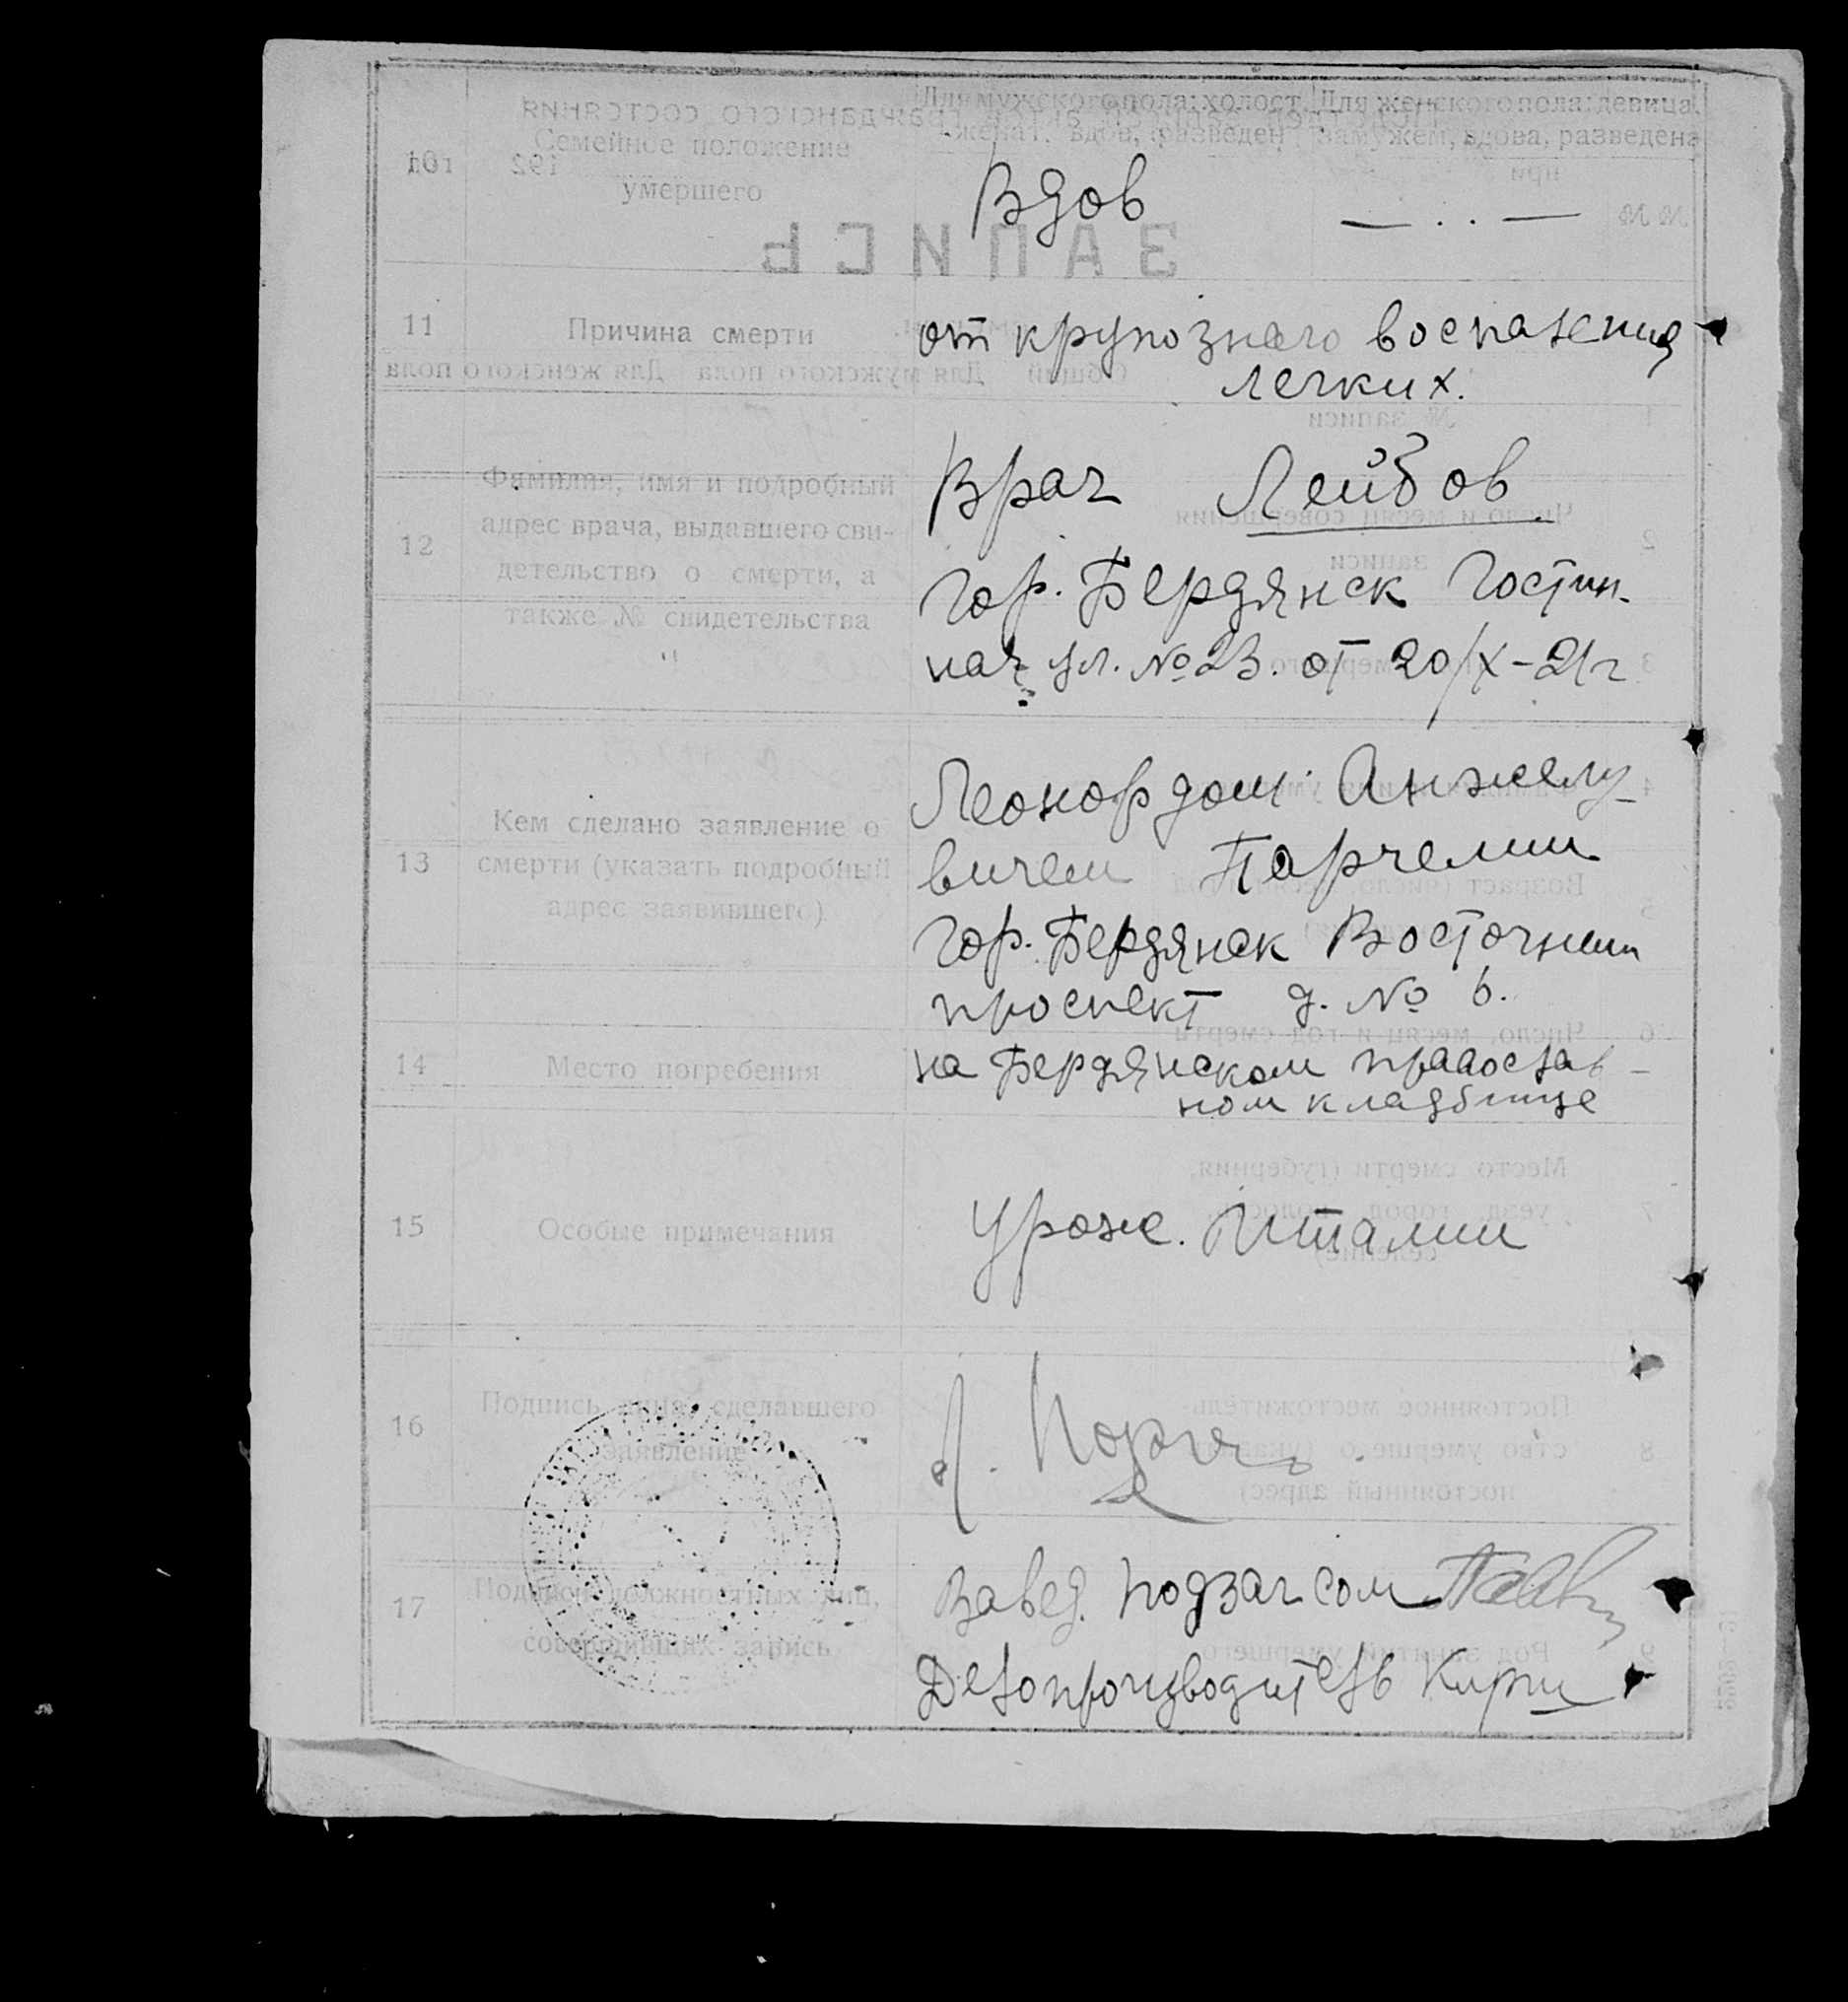 Для мужского пола: холост, женат, вдов, разведен
Для женского пола: девица, замужем, вдова, разведена
10
Семейное положение
умершего
Вдов
— . . —
11
Причина смерти
от крупознаго воспаления
легких.
12
Фамилия, имя и подробный
адрес врача, выдавшего сви-
детельство о смерти, а
также № свидетельства
Врач Лейбов
Гор. Бердянск Гостин-
ная ул. № 23. от 20/X-21 г
13
Кем сделано заявление о
смерти (указать подробный
адрес заявившего)
Леонордом Анжелу-
вичем Парчелли
Гор. Бердянск Восточный
проспект д. № 6.
14
Место погребения
на Бердянском православ-
ном кладбище
15
Особые примечания
Урож. Италии
16
Подпись лица, сделавшего
заявление
Л.
17
Подписи должностных лиц,
совершивших запись
Завед. подзагсом
Делопроизводитель Кирш
ЗАПИСЬ